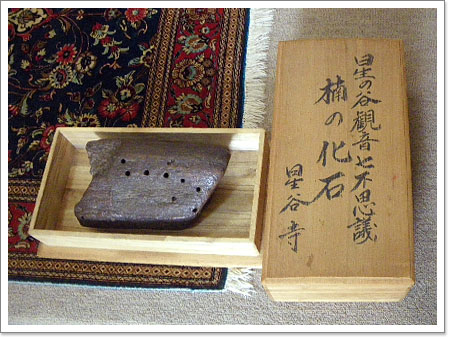 星の谷観音七不思議
楠の化石
星谷寺